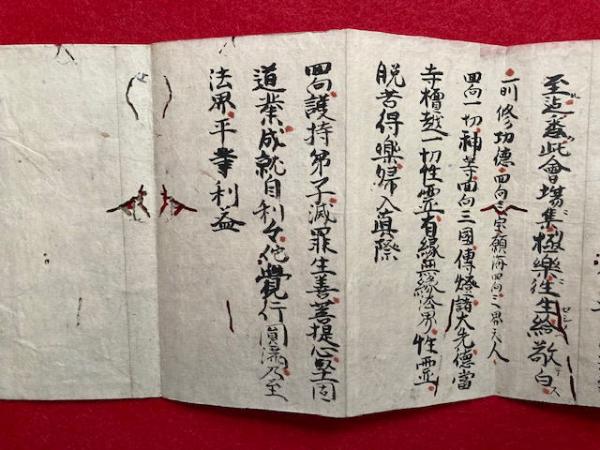 至迠悉此會塲集極樂往生給敬白
所修功德回向三宝願海回向三界天人
回向一切神等回向三國傳燈諸大先德當
寺檀越一切性霊有縁無縁法界性霊
脱苦得樂歸入眞際
回向護持弟子滅罪生善菩提心堅固
道業成就自利々佗覺行圓滿乃至
法界平等利益